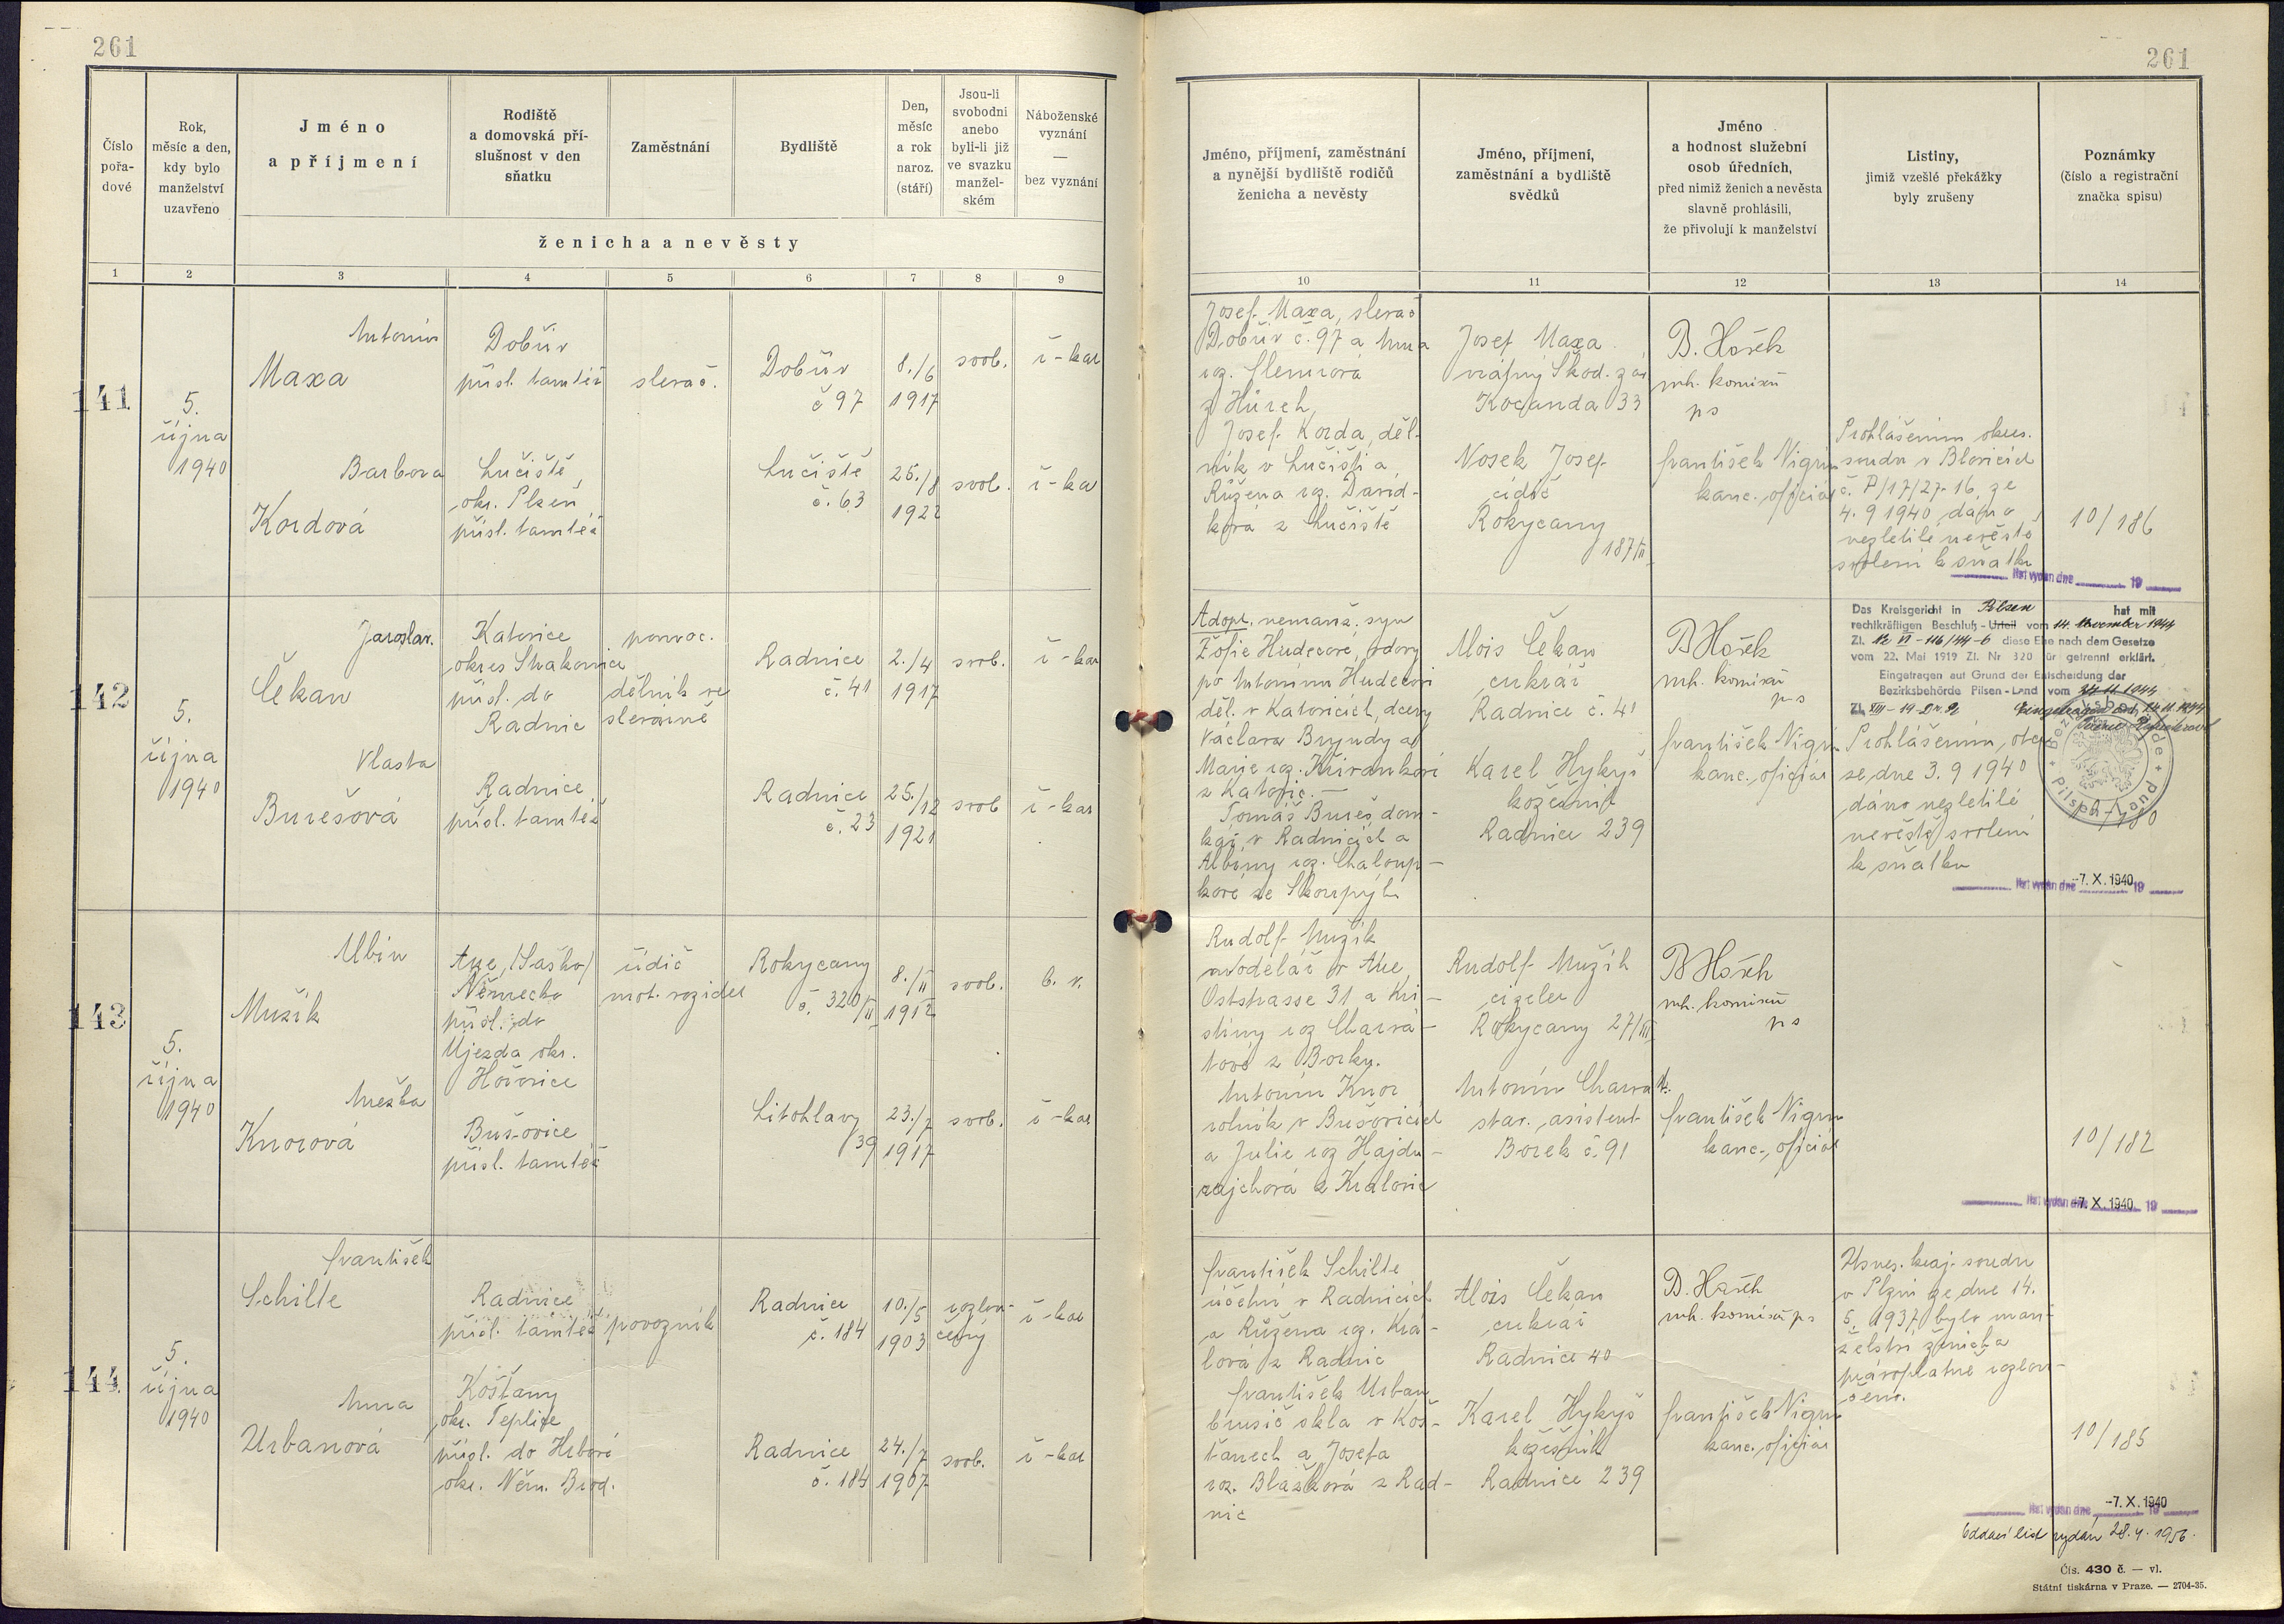 261
261
Číslo
pořa-
dové
Rok,
měsíc a den,
kdy bylo
manželství
uzavřeno
Jméno
a příjmení
Rodiště
a domovská pří-
slušnost v den
sňatku
Zaměstnání
Bydliště
Den,
měsíc
a rok
naroz.
(stáří)
Jsou-li
svobodni
anebo
byli-li již
ve svazku
manžel-
ském
Náboženské
vyznání
—
bez vyznání
ženicha a nevěsty
Jméno, příjmení, zaměstnání
a nynější bydliště rodičů
ženicha a nevěsty
Jméno, příjmení,
zaměstnání a bydliště
svědků
Jméno
a hodnost služební
osob úředních,
před nimiž ženich a nevěsta
slavně prohlásili,
že přivolují k manželství
Listiny,
jimiž vzešlé překážky
byly zrušeny
Poznámky
(číslo a registrační
značka spisu)
1 2 3 4 5 6 7 8 9 10 11 12 13 14
141
5.
října
1940
Antonín
Maxa
Dobřív
přísl. tamtéž
slevač.
Dobřív
č 97
8./6
1917
svob.
ř-kat
Barbora
Kordová
Lučiště,
okr. Plzeň
přísl. tamtéž
Lučiště
č. 63
25./8
1922
svob.
ř-ka
Josef Maxa, slevač
Dobřív č. 97 a Anna
roz.
z Hůrek,
Josef Korda, děl-
ník v Lučišti a
Růžena roz. David-
ková z Lučiště
Josef Maxa
Škod. záv
Kocanda 33
Nosek Josef
cídič
Rokycany
187/II
B. Hošek
vrh. komisař
ps
František Nigrin
kanc. oficiál
Prohlášením okres.
soudu v Blovicích
č. P/17/27-16, ze
4. 9 1940, dáno
nezletilé nevěstě
svolení k sňatku
10/186
list vydán dne 19
142
5.
října
1940
Jaroslav.
Čekan
Katovice
okres Strakonice
přísl. do
Radnic
pomoc.
dělník ve
slévárně
Radnice
č. 41
2./4
1917
svob.
ř-kat
Vlasta
Burešová
Radnice
přísl. tamtéž
Radnice
č. 23
25./12
1921
svob
ř-kat
Adopt. nemanž. syn
Žofie Hudecové, vdovy
po Antonínu Hudecovi
děl. v Katovicích, dcery
Václava Bryndy a
Marie roz. Křivánkové
z Katovic.—
Tomáš Bureš, dom-
kář, v Radnicích a
Albiny roz. Chaloup-
kové ze Skoupých
Alois Čekan
cukrář
Radnice č. 41
Karel Hykyš
kožešník
Radnice 239
B Hošek
vrh. komisař
p-s
František Nigrin
kanc. oficiál
Das Kreisgericht in Pilsen hat mit
rechtkräftigen Beschluß - Urteil vom 14. November 1944
Zl. Nc VI - 116/44-6 diese Ehe nach dem Gesetze
vom 22. Mai 1919 Zl. Nr 320 für getrennt erklärt.
Eingetragen auf Grund der Entscheidung der
Bezirksbehörde Pilsen-Land vom 24. 11. 1944
Prohlášením, otce
ze dne 3. 9 1940
dáno nezletilé
nevěstě svolení
k sňatku
list vydán dne -7. X. 1940 19
143
5.
října
1940
Albin
Mužík
Aue, /Sasko/
Německo
přísl. do
Újezda okr.
Hořovice
řidič
mot. vozidel
Rokycany
č. 320/II
8./II
1912
svob.
b. v.
Anežka
Knorová
Bušovice
přísl. tamtéž
Litohlavy
39
23./7
1917
svob.
ř-kat
Rudolf Mužík
modelář v Aue,
Oststrasse 31 a Kri-
stiny roz Charvá-
tové z Borku.
Antonín Knor
rolník v Bušovicích
a Julie roz Hajdu-
z Kralovic
Rudolf Mužík
cizeler
Rokycany 27/III
Antonín Charvát.
stav. asistent
Borek č. 91
B Hošek
vrh. komisař
ps
František Nigrin
kanc. oficiál
10/182
list vydán dne -7. X. 1940 19
144
5.
října
1940
František
Schille
Radnice
přísl. tamtéž
povozník
Radnice
č. 184
10./5
1903
rozlou-
čený
ř-kat
Anna
Urbanová
Košťany
okr. Teplice
přísl. do Hrbové
okr. Něm. Brod.
Radnice
č. 184
24./7
1907
svob.
ř-kat
František Schille
účetní v Radnicích
a Růžena roz. Krá-
lová z Radnic
František Urban
brusič skla v Koš-
ťanech a Josefa
roz. Blažková z Rad-
nic
Alois Čekan
cukrář
Radnice 40
Karel Hykyš
kožešník
Radnice 239
B. Hošek
vrh. komisař ps
František Nigrin
kanc. oficiál
Usnes. kraj. soudu
v Plzni ze dne 14.
5. 1937 bylo man-
želství ženicha
právoplatně rozlou-
čeno.
10/185
list vydán dne -7. X. 1940 19
Oddací list vydán 28. 4. 1956.
Čís. 430 č. — vl.
Státní tiskárna v Praze. — 2704-35.